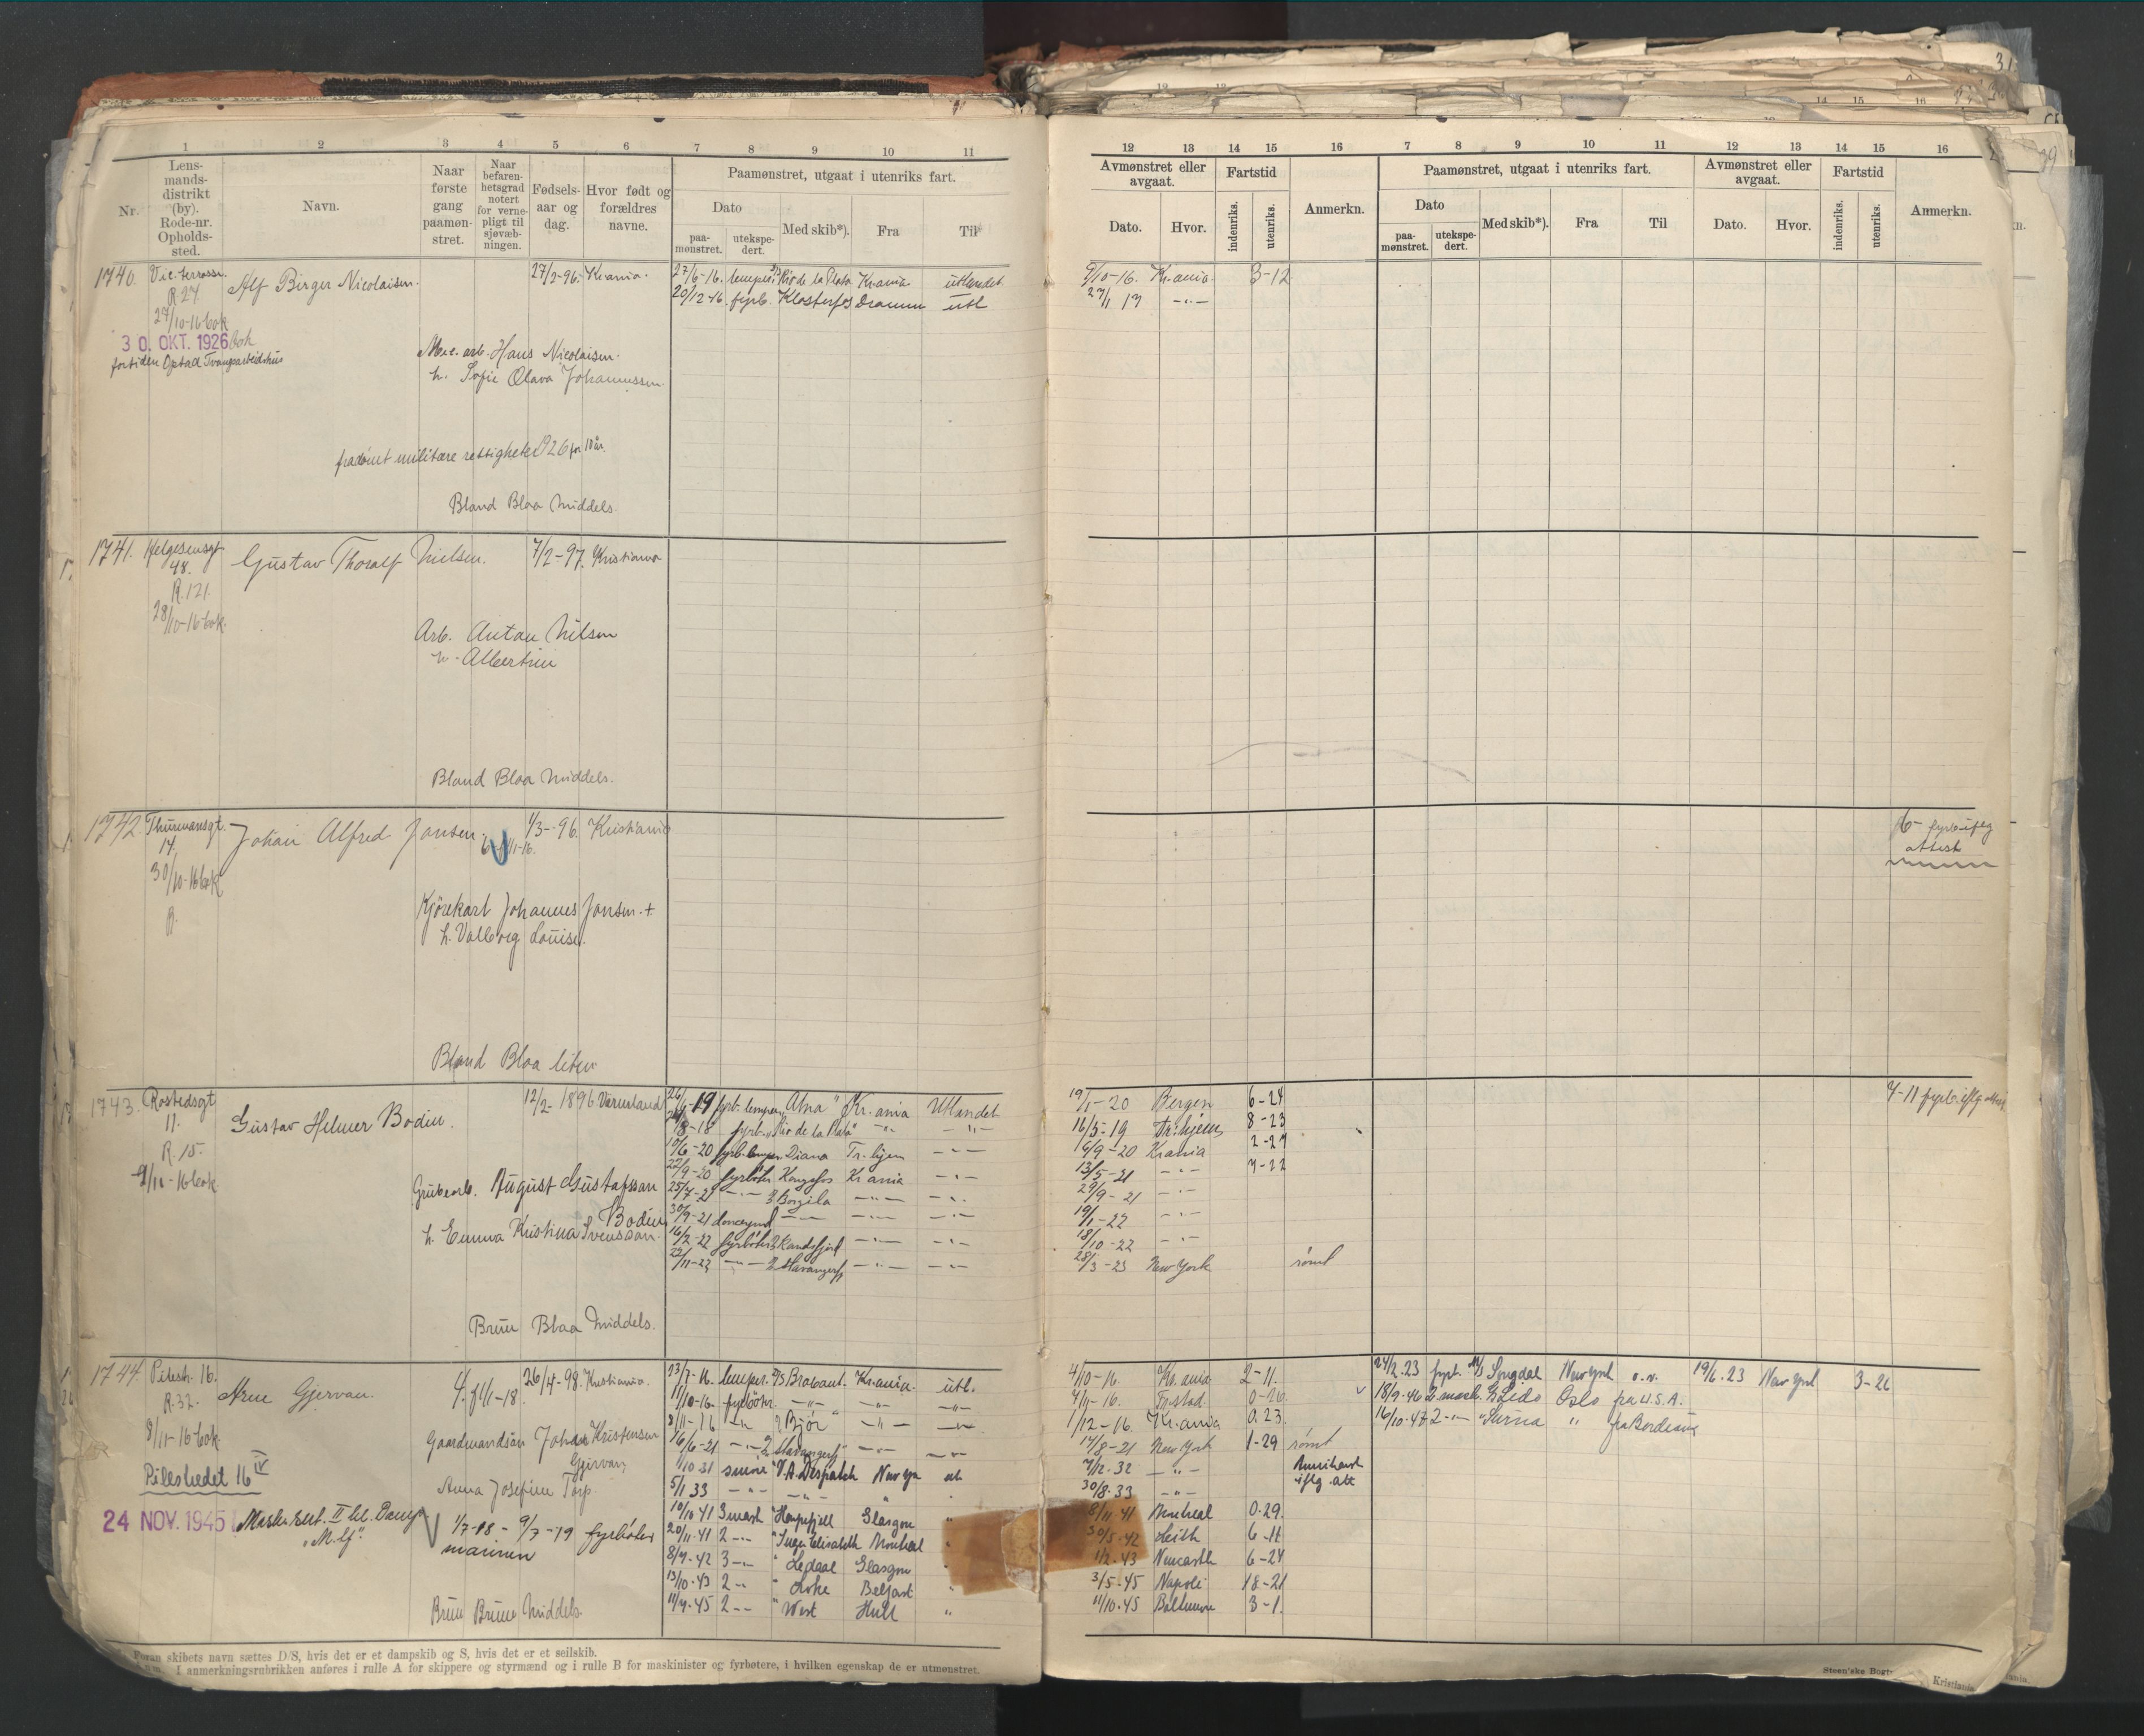 1 2 3 4 5 6 7 8 9 10 11
Nr.
Lens-
mands-
distrikt
(by).
Rode-nr.
Opholds-
sted.
Navn.
Naar
første
gang
paamøn-
stret.
Naar
befaren-
hetsgrad
notert
for verne-
pligt til
sjøvæb-
ningen.
Fødsels-
aar og
dag.
Hvor født og
forældres
navne.
Paamønstret, utgaat i utenriks fart.
Dato
paa-
mønstret.
utekspe-
dert.
Med skib*).
Fra
Til
12 13 14 15 16 7 8 9 10 11 12 13 14 15 16
Avmønstret eller
avgaat.
Dato.
Hvor.
Fartstid
indenriks.
utenriks.
Anmerkn.
Paamønstret, utgaat i utenriks fart.
Dato
paa-
mønstret.
utekspe-
dert.
Med skib*).
Fra
Til
Avmønstret eller
avgaat.
Dato.
Hvor.
Fartstid
indenriks.
utenriks.
Anmerkn.
1740. Vic. terrasse. Alf Birger Nicolaisen. 27/2-96. Kr.ania.
R. 27
27/10-16 bok
30. OKT. 1926 bok
fortiden Opstad Tvangsarbeidshus
Mec. arb. Hans Nicolaisen.
h. Sofie Olava Johannessen.
fradømt militære rettigheter 1926 for 10 år.
Bland Blaa Middels.
27/6-16. lemper Rio de la Plata Kr.ania utlandet 9/10-16. Kr.ania. 3-12
20/12-16. fyrb. Klosterfos Dramm utl 27/1 17 -"-
1741. Helgesensgt Gustav Thoralf Nielsen. 7/2-97. Kristiania
48.
R. 121.
28/10-16 bok.
Arb. Anton Nilsen
h. Albertine
Bland Blaa Middels.
1742. Thurmansgt. Johan Alfred Jansen. 1/3-96. Kristiania
14.
30/10-16 bok
R.
Kjørekarl Johannes Jansen. +
h. Valborg Louise.
Bland Blaa liten
6- fyrb iflg
attest
1743. Rostedsgt Gustav Helmer Bodin. 12/2-1896 Värmland
11.
R. 15.
9/11-16 bok
Grubearb. August Gustafsson
Bodin
h. Emma Kristina Svensson.
Brun Blaa Middels.
-19 fyrb. lemper "Atna" Kr.ania Utlandet 19/1-20 Bergen 6-24
/8-18 fyrb. "Rio de la Plata" -"- -"- 16/5-19 Tr.hjem 8-23
10/6-20 fyrb. lemper Diana Tr.hjem -"- /9-20 Kr.ania 2-27
22/9-20 fyrbøter Kongsfos Kr.ania -"- 13/5-21 -"- 7-22
25/7-21 -"- Borgila -"- -"- 29/9-21 -"-
30/9-21 donceymd -"- -"- -"- 19/1-22 -"-
16/2-22 fyrbøter Randsfjord -"- -"- 18/10-22 -"-
22/11-22 -"- Stavangerfj -"- -"- 28/3-23 New York rømt
7-11 fyrb. iflg attest
1744. Pilestr. 16. Arne Gjervan. 26/4-98. Kristiania.
R. 32.
8/11-16 bok
Pilestredet 16 IV
24 NOV. 1945
Maskr. cert. II kl. Damp
"M. lf".
Gaardmandsøn Johan Kristensen
Gjervan
Anna Josefine Torp.
1/7-18 - 9/7-19 fyrbøter
marinen
Brun Brune Middels.
23/7-16. lemper. D/S Brabant. Kr.ania. utl. 4/10-16. Kr.ania 2-11.
11/10-16. fyrbøter. -"- -"- -"- 4/11-16. Fr.stad. 0-20
3/11-16 -"- Bjør -"- -"- 1/12-16. Kr.ania 0.23.
16/6-21 -"- Stavangerfj -"- -"- 14/8-21 New York 1-29 rømt
/10 31 smøre V.A. Despatch New York utl 7/12.32 -"- Amerikansk
5/1 33 -"- -"- " 30/8.33 -"- iflg. att
10/10 41 3 mask "Høegsfjell Glasgow " 8/11 41 Montreal 0.29.
20/11.41 2 -"- "Inger Elisabeth Montreal " 30/5.42 Leith 6-11
8/9.42 3 -"- " Ledaal Glasgow 1/2.43 Newcastle 6-24
13/10.43 2 -"- " Loke Belfast " 3/5.45 Napoli 18-21
11/7.45 2 -"- " West Hull " 11/10.45 Baltimore 3-1.
24/2.23 fyrb. M/S Songdal New York o.v. 19/6.23 New York 3-26
18/9.46 2 mask. Lido Oslo fra U.S.A.
16/10.47 2 -"- "Surna " fra Bordeaux
Foran skibets navn sættes D/S, hvis det er et dampskib og S, hvis det er et seilskib.
I anmerkningsrubrikken anføres i rulle A for skippere og styrmænd og i rulle B for maskinister og fyrbøtere, i hvilken egenskap de er utmønstret.
Steen'ske Bogt
Kristiania